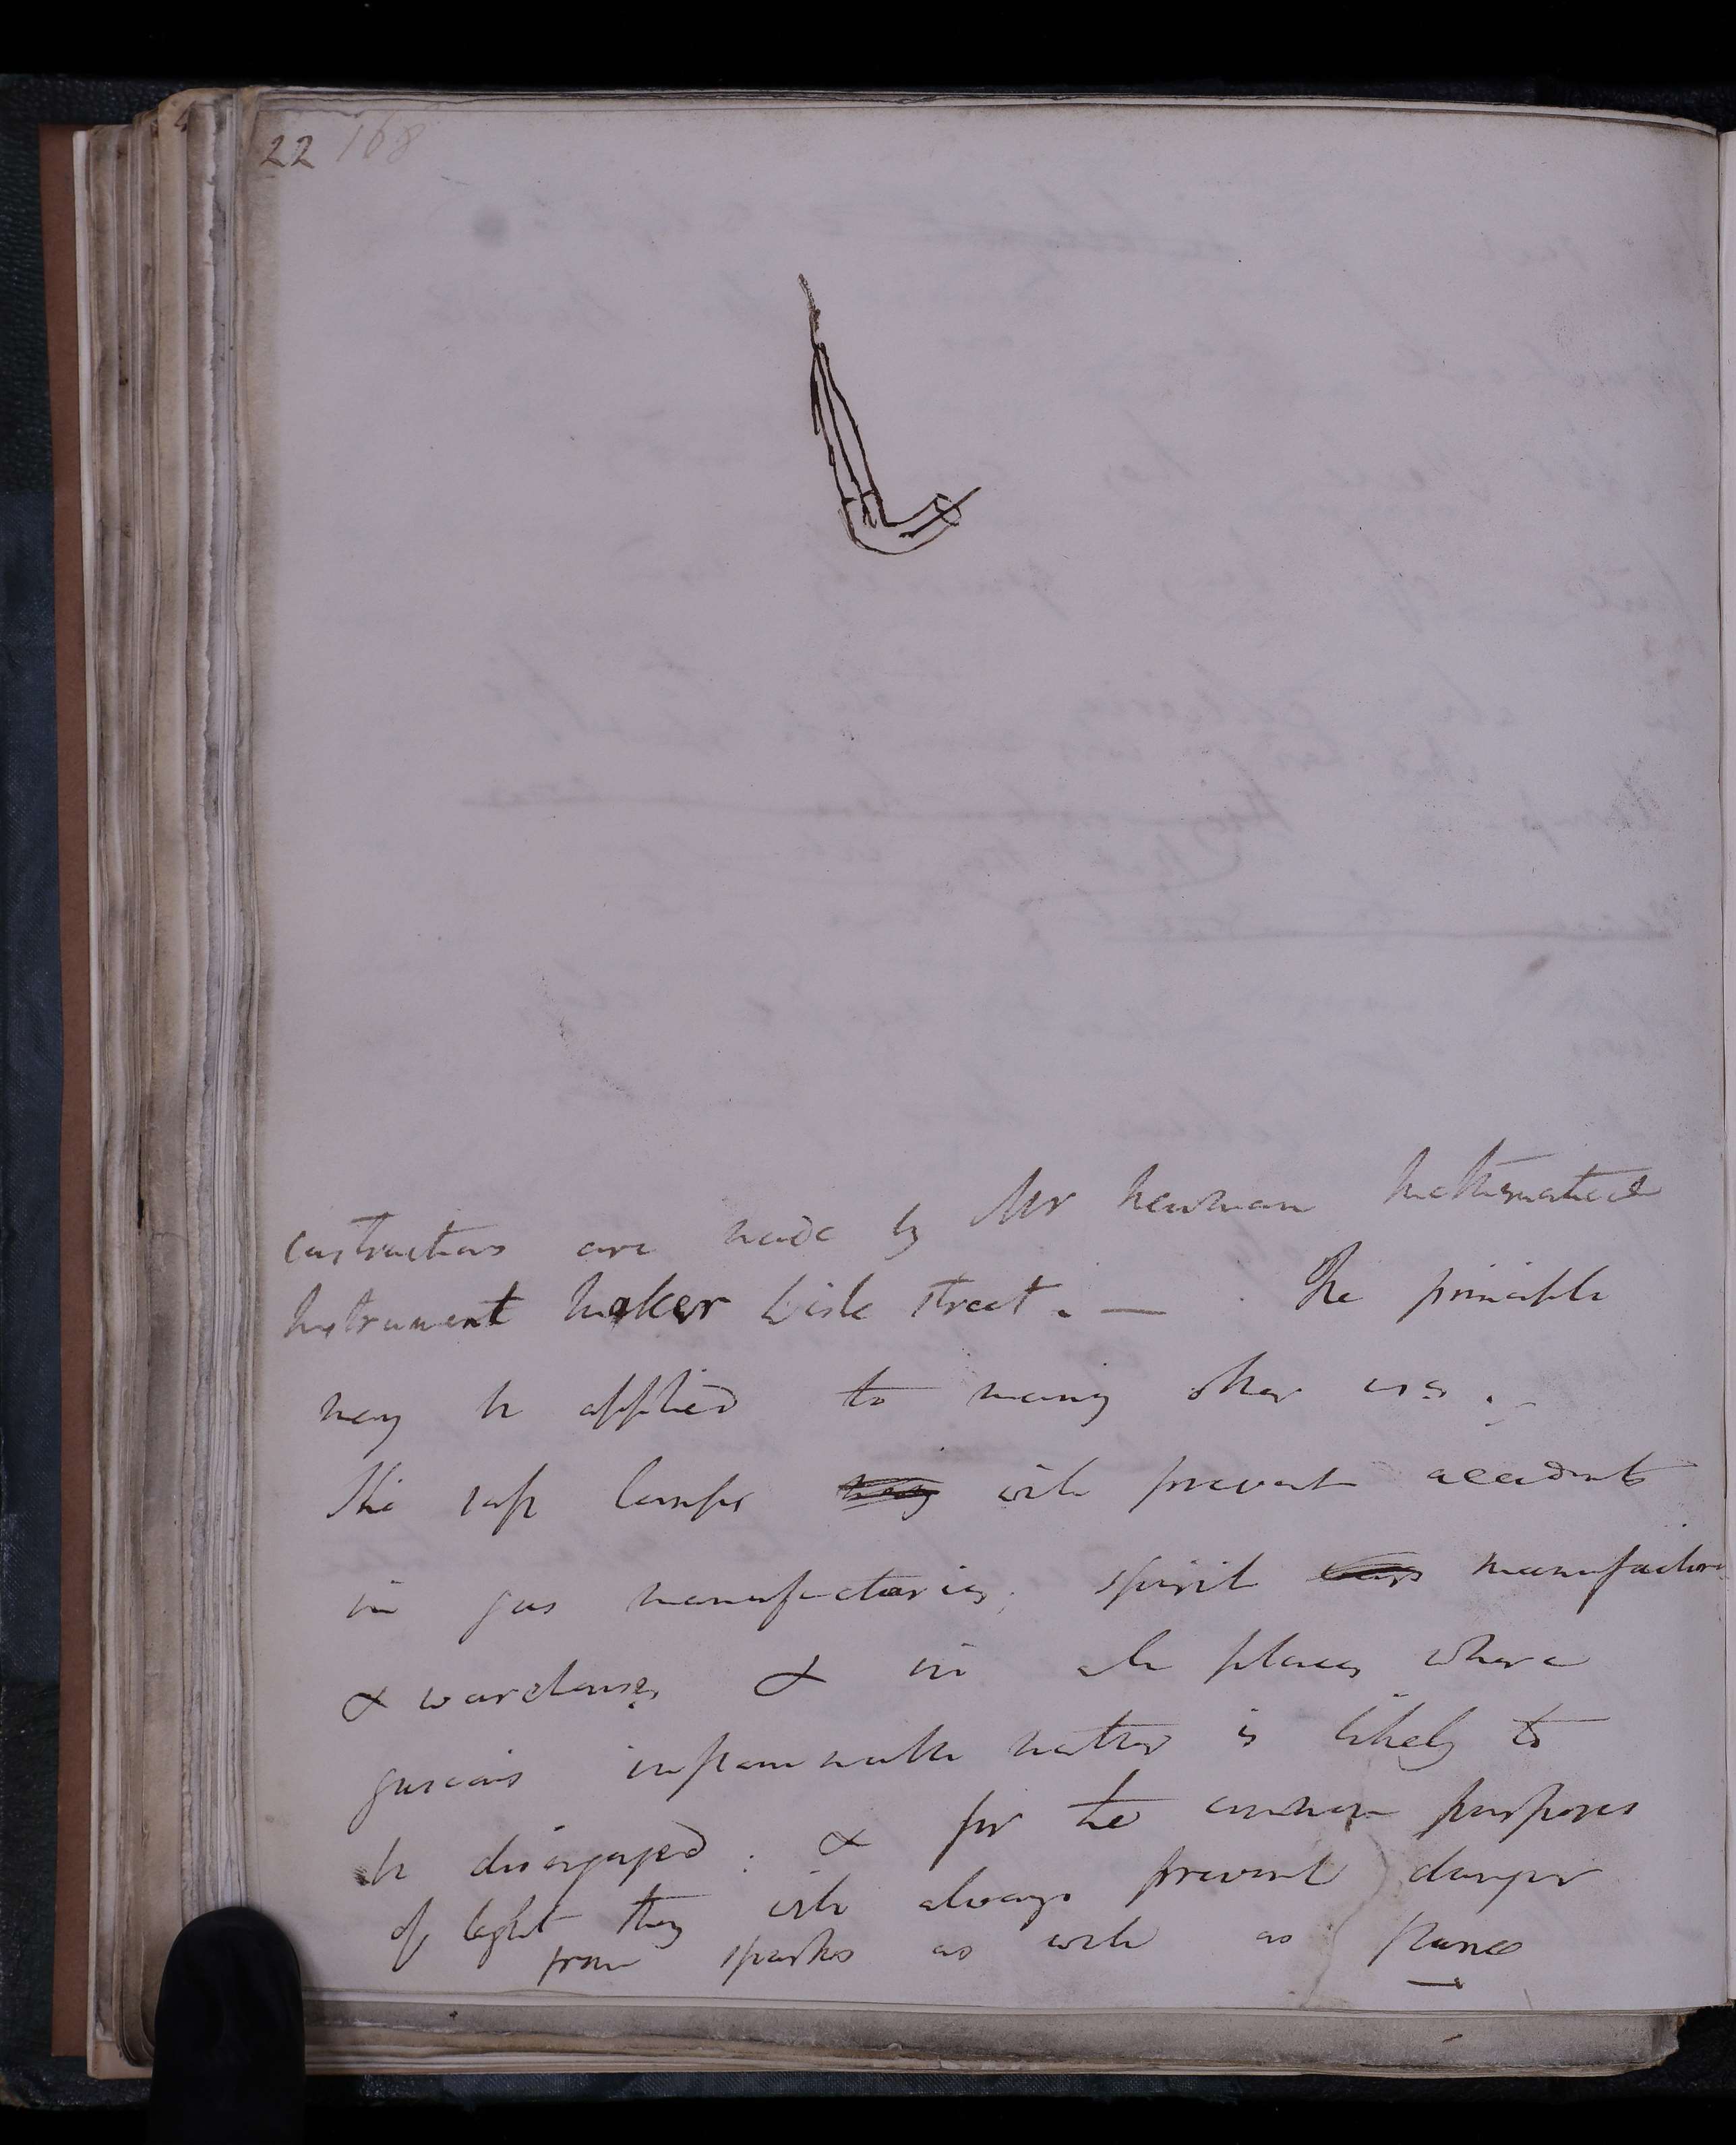 22 168
constructions are made by Mr Newman Mathematical
Instrument Maker Lisle Street. —  The principle
may be applied to many other uses. –
The safe lamps will prevent accidents
in gas manufactories, spirit manufactories
& warehouses & in all places where
gaseous inflammable matter is likely to
be disengaged : & for the common purposes
of light they will always prevent danger
from sparks as well as flame